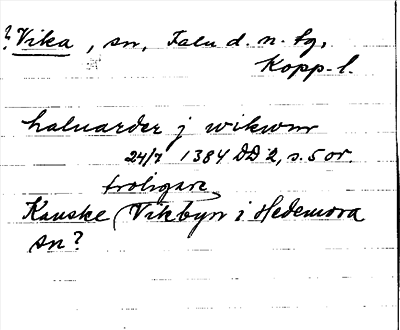 ? Vika, sn, Falu d. n. tg,
Kopp. l.
haluarder j wikwm
24/7 1384 DD 2, s. 5 or.
troligare
Kanske (Vikbyn i Hedemora
sn?